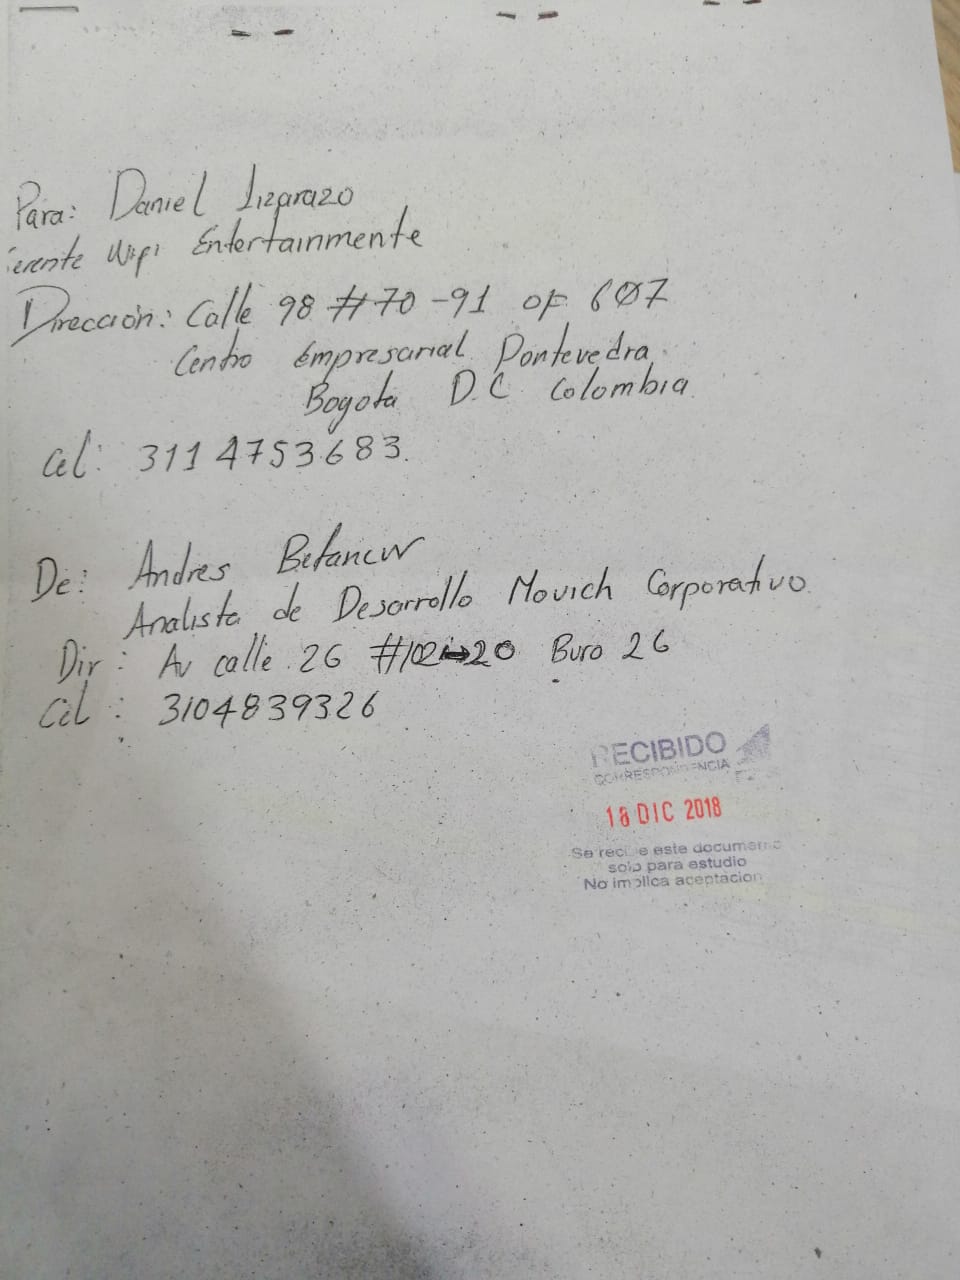 Para: Daniel Lizarazo
erente Wifi Entertainmente
Dirección: Calle 98 #70-91 of 607
Centro Empresarial Pontevedra.
Bogota D.C Colombia.
Cel: 311 4753683.
De: Andres Betancur
Analista de Desarrollo Movich Corporativo.
Dir: Av calle 26 #102-20 Buro 26
Cel: 3104839326
RECIBIDO
CORRESPONDENCIA
18 DIC 2018
Se recibe este documento
solo para estudio
No implica aceptacion